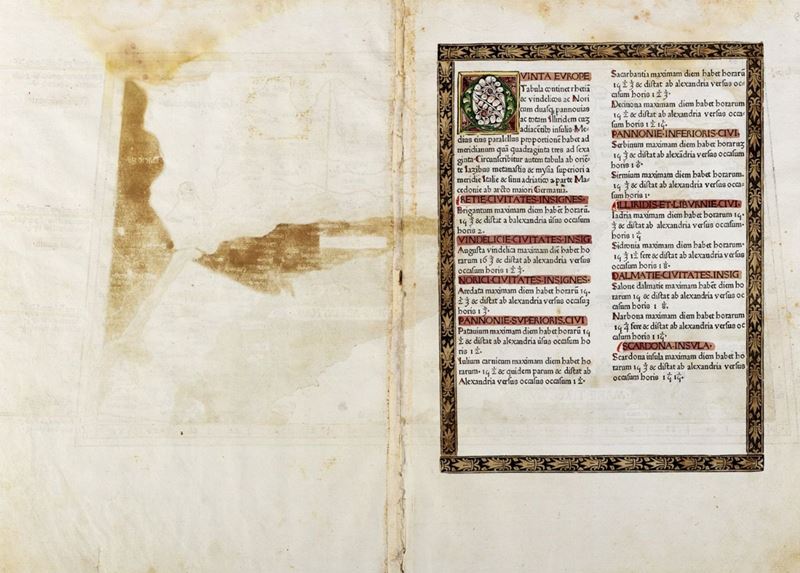 QVINTA EVROPE
Tabula continet rhetiā
& vindelicos ac Nori
cum duasq; pannonias
ac totam illiridem cuz
adiacētib⁹ insulis· Me-
dius eius parallelus proportionē habet ad
meridianum quā quadraginta tres ad sexa
ginta· Circunscribitur autem tabula ab oriē-
te Iazibus metanastis & mysia superiori a
meridie Italie & sinu adriatico a parte Ma-
cedonie ab arcto maiori Germania.
RETIE·CIVITATES·INSIGNES·
Brigantum maximam diem habēt horarum.
& distat a balexandria ūsus occasum
horis 2.
VINDELICIE·CIVITATES·INSIG
Augusta vindelica maximam diē habet ho
rarum 16 & distat ab alexandria versus
occasum horis
NORICI·CIVITATES·INSIGNES·
Aredata maximam diem habet horarū
& distat ab alexandria versus occasuz
horis
PANNONIE·SVPERIORIS·CIVI
Patauium maximam diem habet horarū
& distat ab alexandria ūsus occasum ho
ris
Iulium carnicum maximam diem habet ho
rarum· & quidem parum & distat ab
Alexandria versus occasus occasum
Sacarbantia maximam diem habet horarū
& distat ab alexandria versus oc-
casum horis
Decinona maximam diem habet horarum
& distat ab alexandria versus occa-
sum horis
PANNONIE·INFERIORIS·CIVI·
Serbinum maximam diem habet horaruz
& distat ab alexādria versus occasum
horis
Sirmium maximam diem habet horarum.
& distat ab alexandria versus occa-
sum horis 1·
ILLIRIDIS·ET·LIBVRNIE·CIVI·
Iadria maximam diem habet horarum
& distat ab alexandria versus occasum·
horis
Sidronia maximam diem habet horarum·
fere & distat ab alexandria versus
occasum horis
DALMATIE·CIVITATES·INSIG
Salone dalmatie maximam diem habēt ho
rarum & distat ab alexandria versus oc
casum horis
Narbona maximam diem habet horarum
fere & distat ab alexandria versus oc-
casum horis
SCARDONA·INSVLA·
Scardona insula maximam diem habet ho
rarum & distat ab alexandria versus
occasum horis